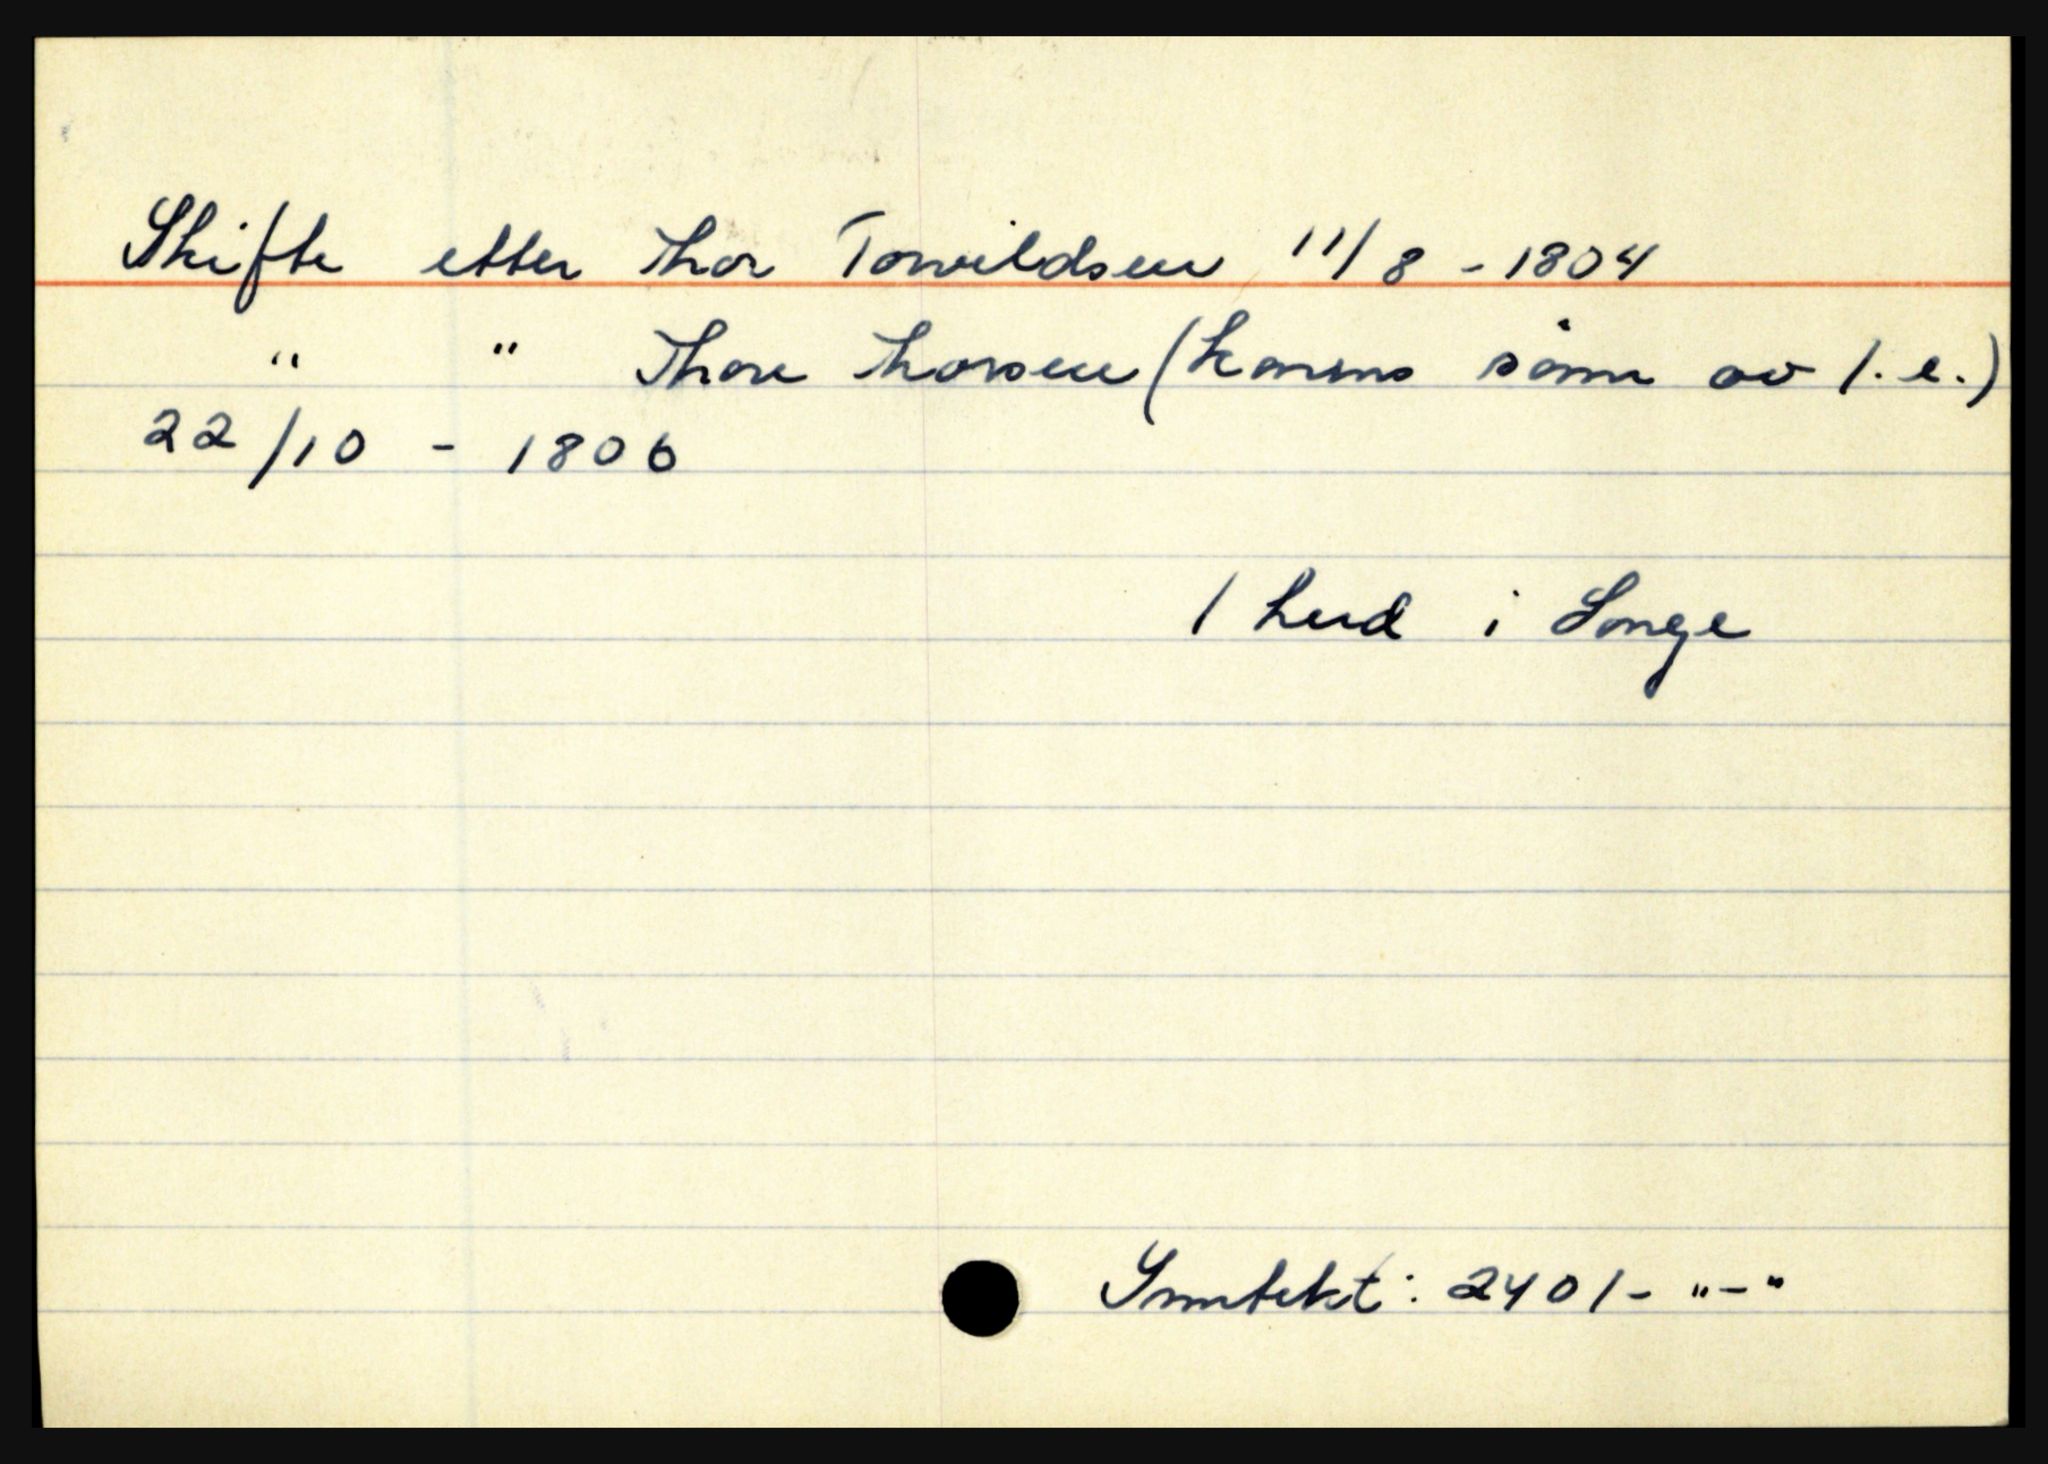 Skifte etter Thor Torvildsen 11/8 - 1804
" " Thore Thorsen (konens sønn av 1. e.)
22/10 - 1806
1 hud i Songe
Inntekt: 2401- "-"